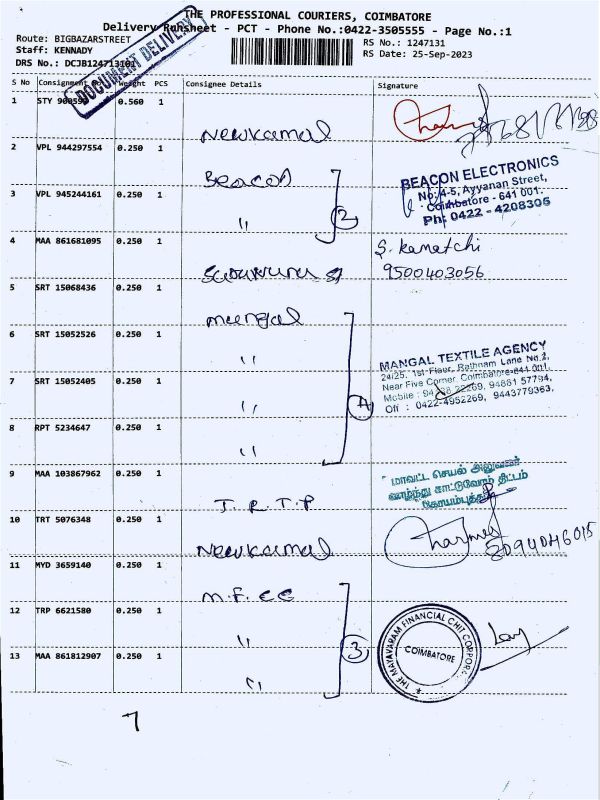 THE PROFESSIONAL COURIERS, COIMBATORE
Delivery Runsheet - PCT - Phone No.:0422-3505555 - Page No.:1
Route: BIGBAZARSTREET
RS No.: 1247131
Staff: KENNADY
RS Date: 25-Sep-2023
DRS No.: DCJB124713101
DOCUMENT DELIVERY
S No Consignment Weight PCS Consignee Details Signature
1 STY 0.560 1 Newkamal
2 VPL 944297554 0.250 1 Beacon
BEACON ELECTRONICS
No: 4-5, Ayyanan Street,
Coimbatore - 641 001.
Ph: 0422 - 4208306
3 VPL 945244161 0.250 1 "
2
4 MAA 861681095 0.250 1
S. Kamatchi
9500403056
5 SRT 15068436 0.250 1 mangal
6 SRT 15052526 0.250 1 "
MANGAL TEXTILE AGENCY
24/25, 1st Floor, Rathnam Lane No.2,
Near Five Corner, Coimbatore-641 001.
Mobile : 94881 57794,
Off : 0422-4952269, 9443779363,
7 SRT 15052405 0.250 1 "
4
8 RPT 5234647 0.250 1 "
9 MAA 103867962 0.250 1 T.R.T.P
மாவட்ட செயல் அலுவலர்
வாழ்ந்து காட்டுவோம் திட்டம்
கோயம்புத்தூர்
10 TRT 5076348 0.250 1 Newkamal
8094046015
11 MYD 3659140 0.250 1 M.F.CC
12 TRP 6621580 0.250 1 "
3
THE MAYAVARAM FINANCIAL CHIT CORPOR
COIMBATORE
13 MAA 861812907 0.250 1 "
7